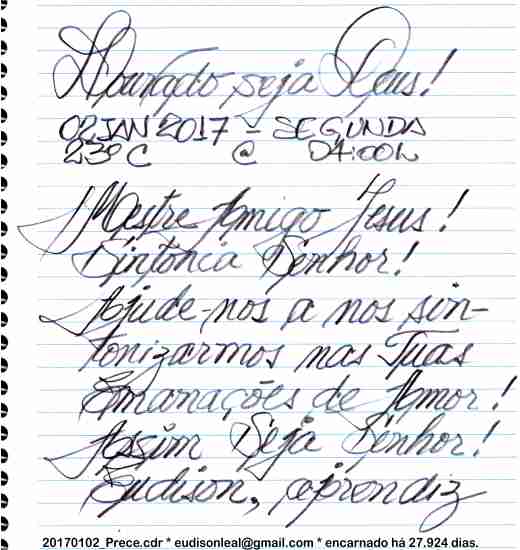 Louvado seja Deus!
02JAN2017 - SEGUNDA
23ºC @ 04:00h
Mestre Amigo Jesus!
Sintonia Senhor!
Ajude-nos a nos sin-
tonizarmos nas Tuas
Emanações de Amor!
Assim Seja Senhor!
Eudison, aprendiz
20170102_Prece.cdr * eudisonleal@gmail.com * encarnado há 27.924 dias.